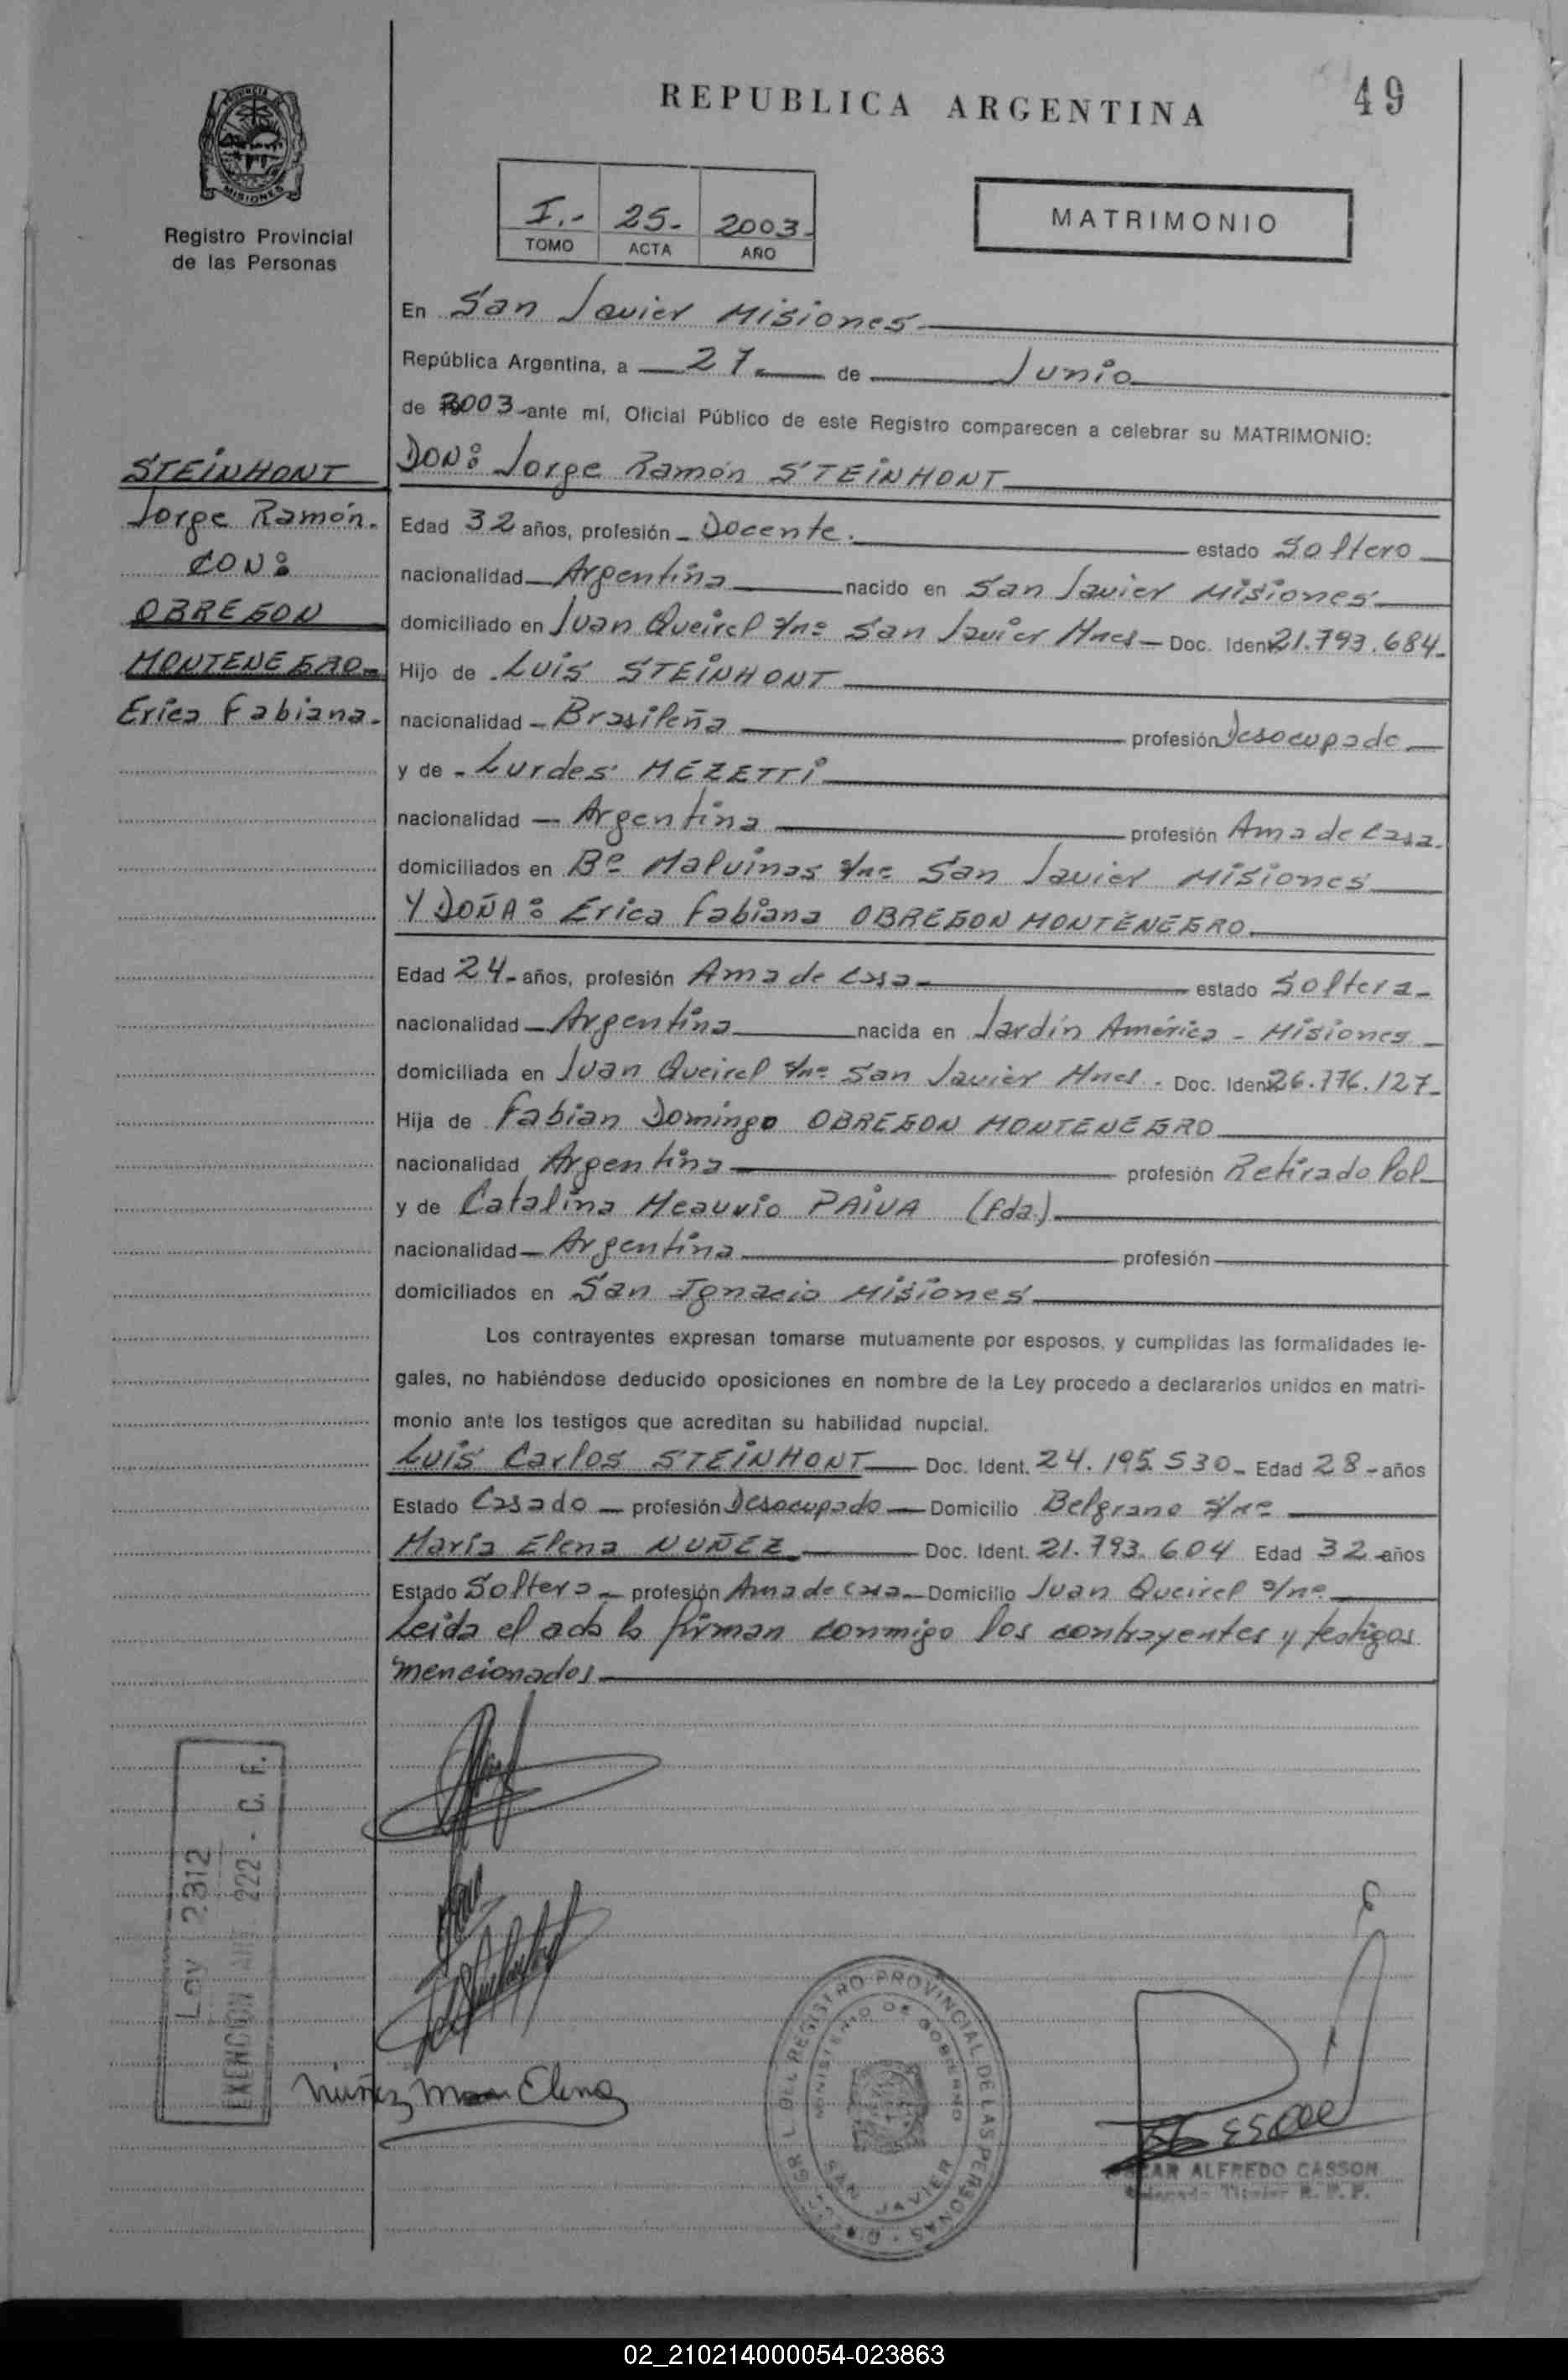 REPUBLICA ARGENTINA
49
PROVINCIA DE
MISIONES
Registro Provincial
de las Personas
I.- 25- 2003-
TOMO ACTA AÑO
MATRIMONIO
En San Javier Misiones
República Argentina, a 27 de Junio
de 2003 ante mí, Oficial Público de este Registro comparecen a celebrar su MATRIMONIO:
STEINHONT
Jorge Ramón.
CON:
OBREGON
MONTENEGRO-
Erica Fabiana-
DON: Jorge Ramón STEINHONT
Edad 32 años, profesión Docente. estado Soltero
nacionalidad Argentina nacido en San Javier Misiones
domiciliado en Juan Queirel s/nº San Javier Mnes Doc. Ident 21.793.684-
Hijo de Luis STEINHONT
nacionalidad Brasileña profesión Desocupado
y de Lurdes MEZETTI
nacionalidad Argentina profesión Ama de Casa.
domiciliados en Bº Malvinas s/nº San Javier Misiones
Y DOÑA: Erica Fabiana OBREGON MONTENEGRO
Edad 24- años, profesión Ama de Casa estado Soltera-
nacionalidad Argentina nacida en Jardín América - Misiones
domiciliada en Juan Queirel s/nº San Javier Mnes. Doc. Ident 26.776.127-
Hija de Fabian Domingo OBREGON MONTENEGRO
nacionalidad Argentina profesión Retirado Pol
y de Catalina PAIVA (fda.)
nacionalidad Argentina profesión
domiciliados en San Ignacio Misiones
Los contrayentes expresan tomarse mutuamente por esposos, y cumplidas las formalidades le-
gales, no habiéndose deducido oposiciones en nombre de la Ley procedo a declararlos unidos en matri-
monio ante los testigos que acreditan su habilidad nupcial.
Luis Carlos STEINHONT Doc. Ident. 24.195.530- Edad 28- años
Estado Casado profesión Desocupado Domicilio Belgrano s/nº
María Elena NUÑEZ Doc. Ident. 21.793.604 Edad 32 años
Estado Soltera profesión Ama de Casa Domicilio Juan Queirel s/nº
Leida el acta la firman conmigo los contrayentes y testigos
mencionados
Ley 2312
EXENCION ART. 222 - C. F.
Nuñez Elena
DEL REGISTRO PROVINCIAL DE LAS PERSONAS
MINISTERIO DE GOBIERNO
SAN JAVIER
ALFREDO CASSON
Titular R. P. P.
02_210214000054-023863